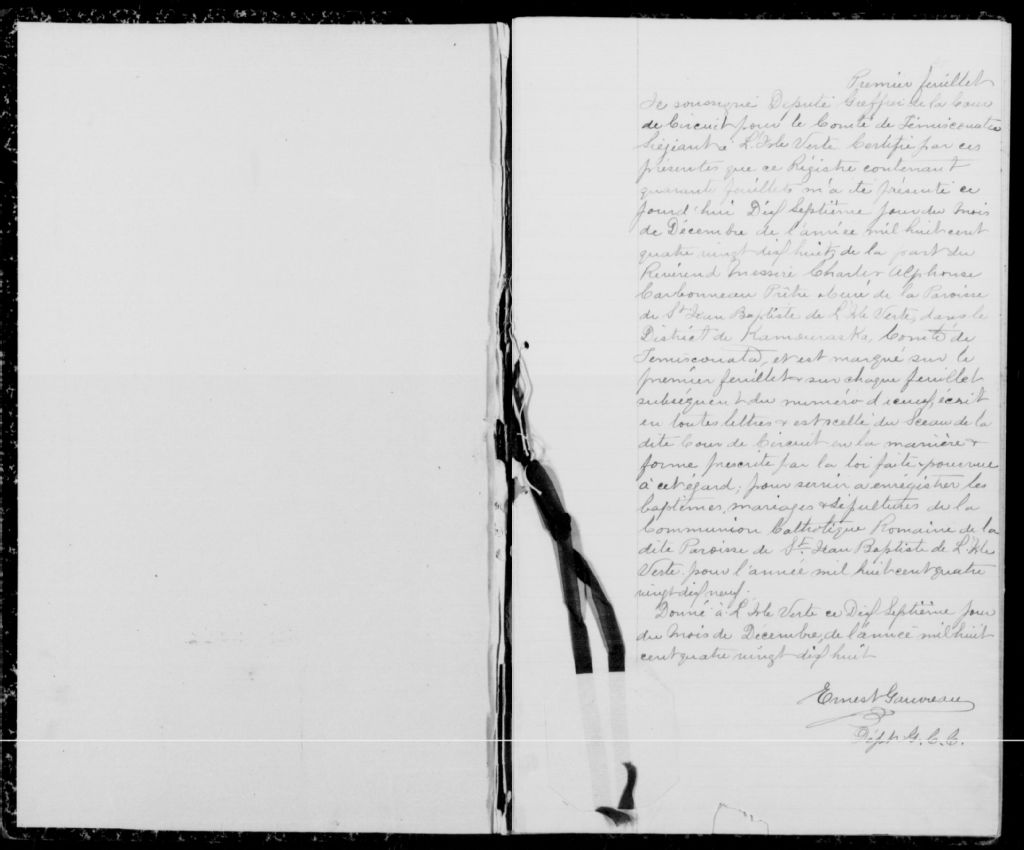 Premier feuillet
Je soussigné Député Greffier de la Cour
de Circuit pour le Comté de Témiscouata
Siégeant à L'Isle Verte Certifie par ces
présentes que ce Régistre contenant
quarante feuillets m'a été présenté ce
jourd'hui Dix Septième jour du mois
de Décembre de l'année mil huit cent
quatre vingt dix huit, de la part du
Révérend Messire Charles Alphonse
Carbonneau Prêtre & curé de la Paroisse
de St Jean Baptiste de L'Isle Verte, dans le
District de Kamouraska, Comté de
Temiscouata, et est marqué sur le
premier feuillet & sur chaque feuillet
subséquent du numéro d'iceux, écrit
en toutes lettres & est scellé du Sceau de la
dite Cour de Circuit en la manière &
forme prescrite par la loi faite & pourvue
à cet égard; pour servir a enrégistrer les
baptêmes, mariages & sépultures de la
Communion Catholique Romaine de la
dite Paroisse de St. Jean Baptiste de L'Isle
Verte pour l'année mil huit cent quatre
vingt dix neuf.
Donné à L'Isle Verte ce Dix Septième jour
du mois de Décembre, de l'année mil huit
cent quatre vingt dix huit
Ernest Gauvreau
Dépt G. C. C.